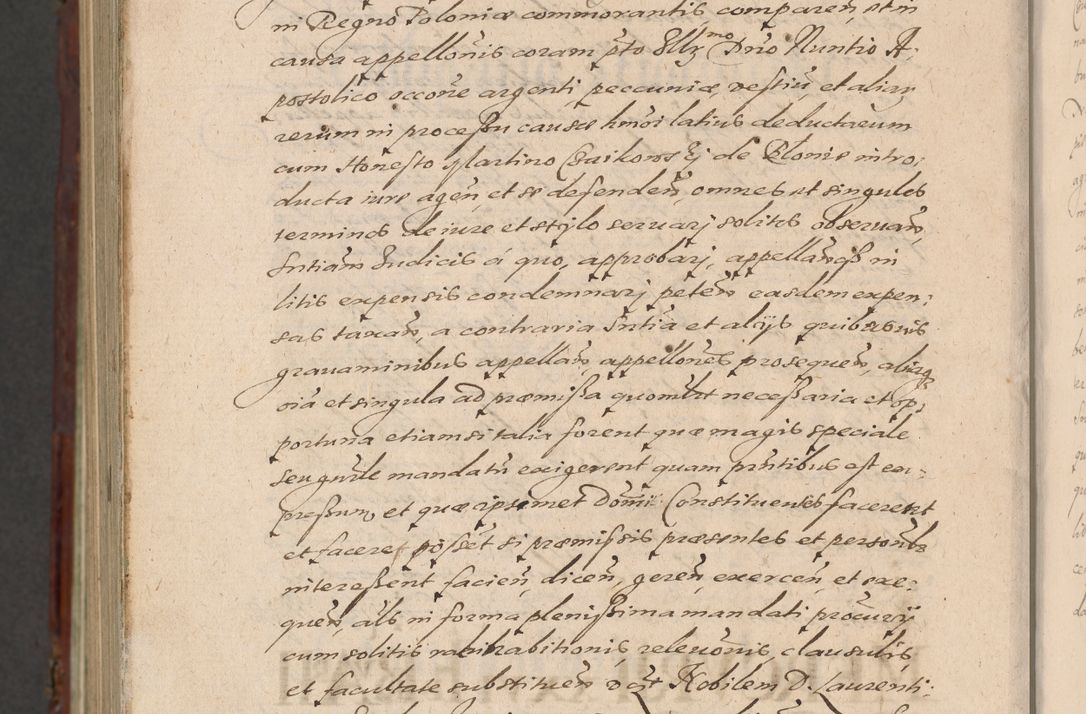 in Regno Poloniæ commorantis, comparen, et in
causa appellonis coram pto Illmo Dno Nuntio A-
postolico occone argenti, peccuniæ, vestiu, et aliar
rerum in processu causæ hmoi latius deductarum
cum Honesto Martino Czaikowskj de Blonie intro,
ducta iure agen, et se defenden, omnes et singulos
terminos de iure et stylo seruarj solitos obseruan,
Sntiam Judicis á quo, approbarj, appellanqz in
litis expensis condemnarj peten easdem expen:
sas taxan, a contraria Sntia et alijs quibusuis
grauaminibus appellan, appellones prosequen, aliaqz
oia et singula ad præmissa quomlt necessaria et op,
portuna etiamsi talia forent quæ magis speciale
seu gnale mandatu exigerent quam pntibus est ex-
pressum, et quæ ipsimet Domi Constituentes facerent
et facere possét si præmissis præsentes et personlr
interessent facien, dicen, geren, exercen, et exe-
quen, als in forma plenissima mandati procurij
cum solitis rabihabitionis, releuonis clausulis,
et facultate substituen dat Nobilem D. Laurenti: